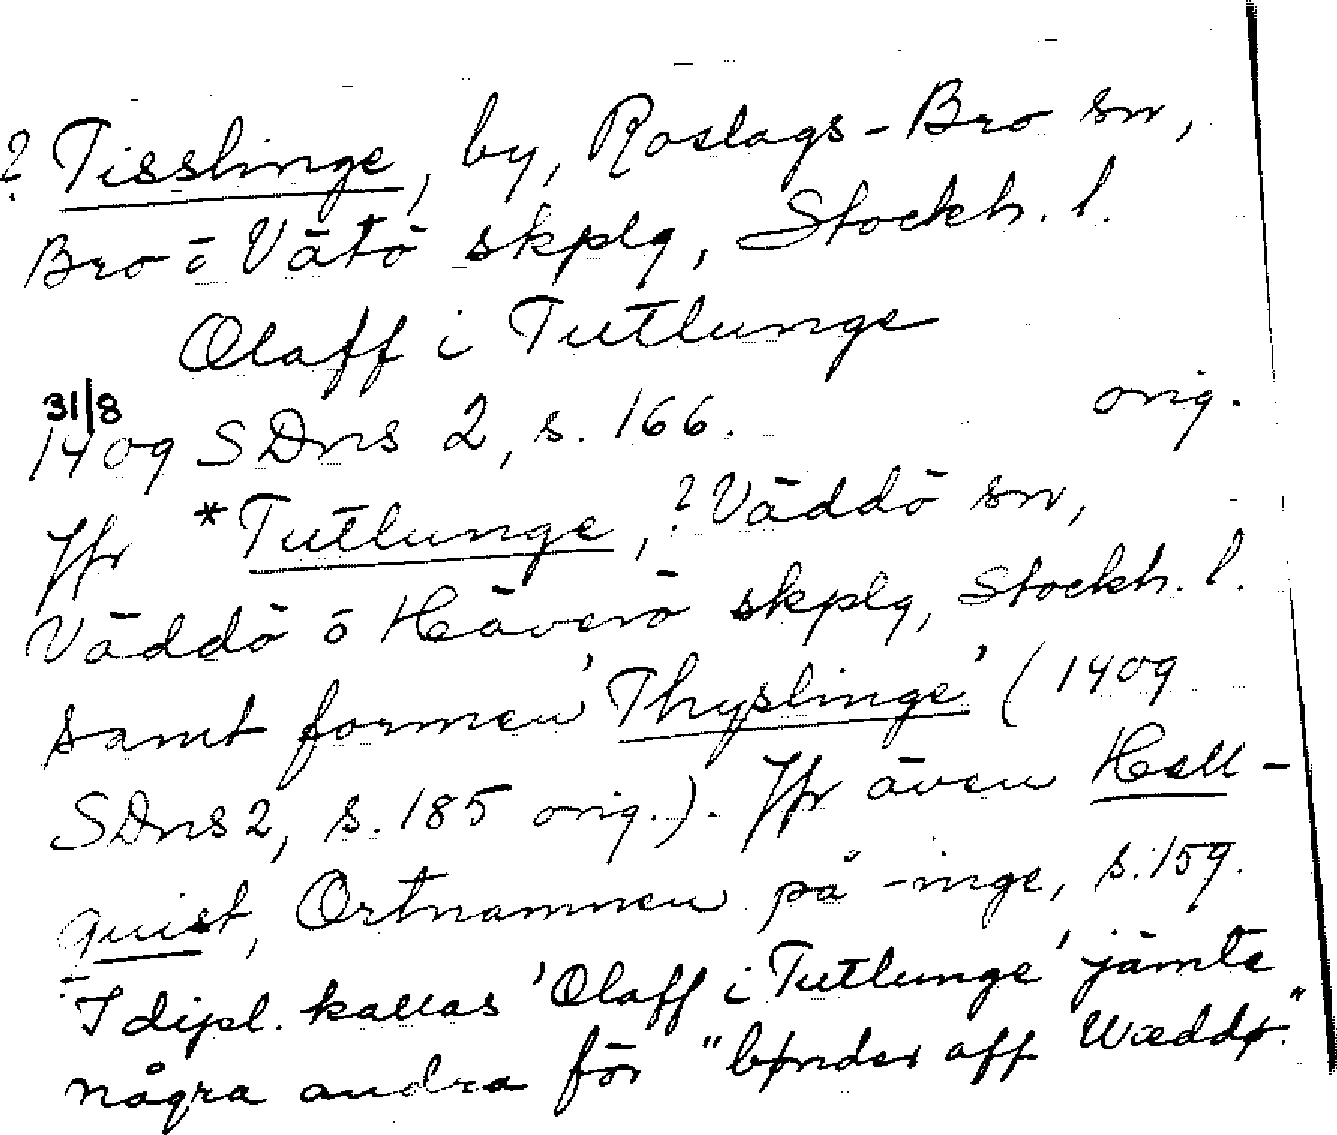 ? Tisslinge, by, Roslags-Bro sn,
Bro o Vätö skplg, Stockh. l.
Olaff i Tutlunge
31/8
1409 SDns 2, s. 166. orig.
Jfr *Tutlunge, ? Väddö sn,
Väddö o Häverö skplg, Stockh. l.
samt formen 'Thyslinge' (1409
SDns 2, s. 185 orig.). Jfr även Hell-
quist, Ortnamnen på -inge, s. 159.
I dipl. kallas 'Olaff i Tutlunge' jämte
några andra för "bønder aff Wæddø."